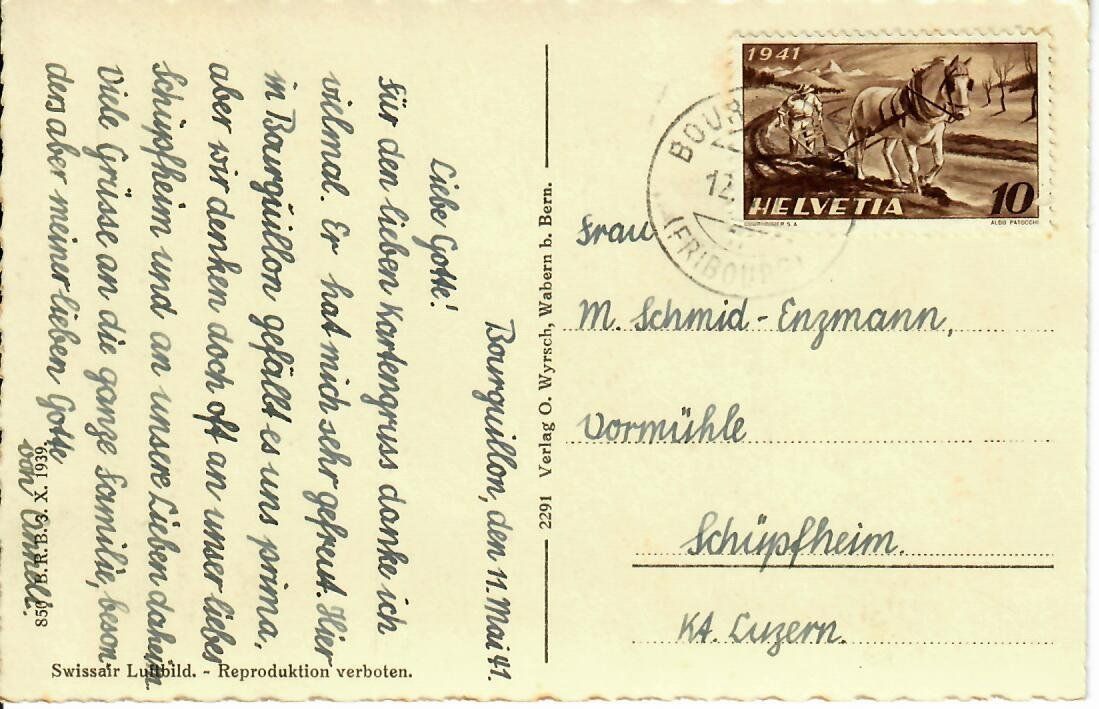 Bourguillon, den 11. Mai 41.
Liebe Gotte!
Für den lieben Kartengruss danke ich
vielmal. Er hat mich sehr gefreut. Hier
in Bourguillon gefällt es uns prima,
aber wir denken doch oft an unser liebes
Schüpfheim und an unsere Lieben daheim.
Viele Grüsse an die ganze Familie, beson
ders aber meiner lieben Gotte
von
850 B.R.B. 3. X. 1939
Swissair Luftbild. - Reproduktion verboten.
2291 Verlag O. Wyrsch, Wabern b. Bern.
1941
HELVETIA
10
COURVOISIER S.A.
ALDO PATOCCHI
BOUR
12.
(FRIBOURG)
Frau
M. Schmid-Enzmann,
Vormühle
Schüpfheim.
Kt. Luzern.